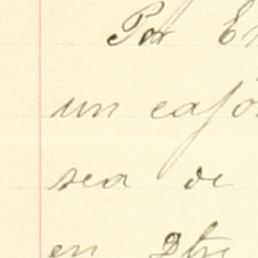 Por E
un cajó
sea de
en Otri